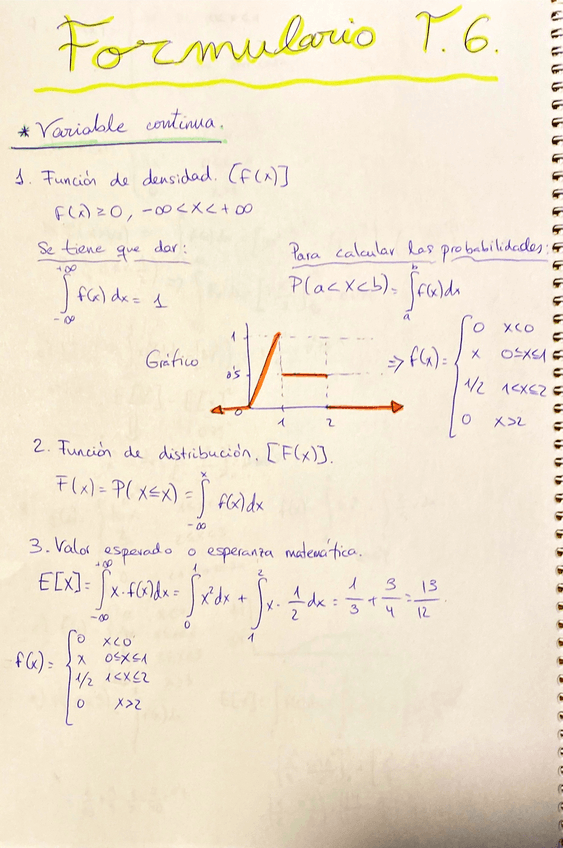 Formulario T.6.
* Variable continua.
1. Función de densidad. [f(x)]
f(x) ≥ 0, -∞ < x < +∞
Se tiene que dar:
∫_{-∞}^{+∞} f(x) dx = 1
Para calcular las probabilidades:
P(a < X < b) = ∫_{a}^{b} f(x) dx
Gráfico
1
0'5
0
1
2
⇒ f(x) = { 0 x<0
x 0≤x≤1
1/2 1<x≤2
0 x>2
2. Función de distribución. [F(x)].
F(x) = P(X≤x) = ∫_{-∞}^{x} f(x) dx
3. Valor esperado o esperanza matemática.
E[X] = ∫_{-∞}^{+∞} x · f(x) dx = ∫_{0}^{1} x² dx + ∫_{1}^{2} x · 1/2 dx = 1/3 + 3/4 = 13/12.
f(x) = { 0 x<0
x 0≤x≤1
1/2 1<x≤2
0 x>2